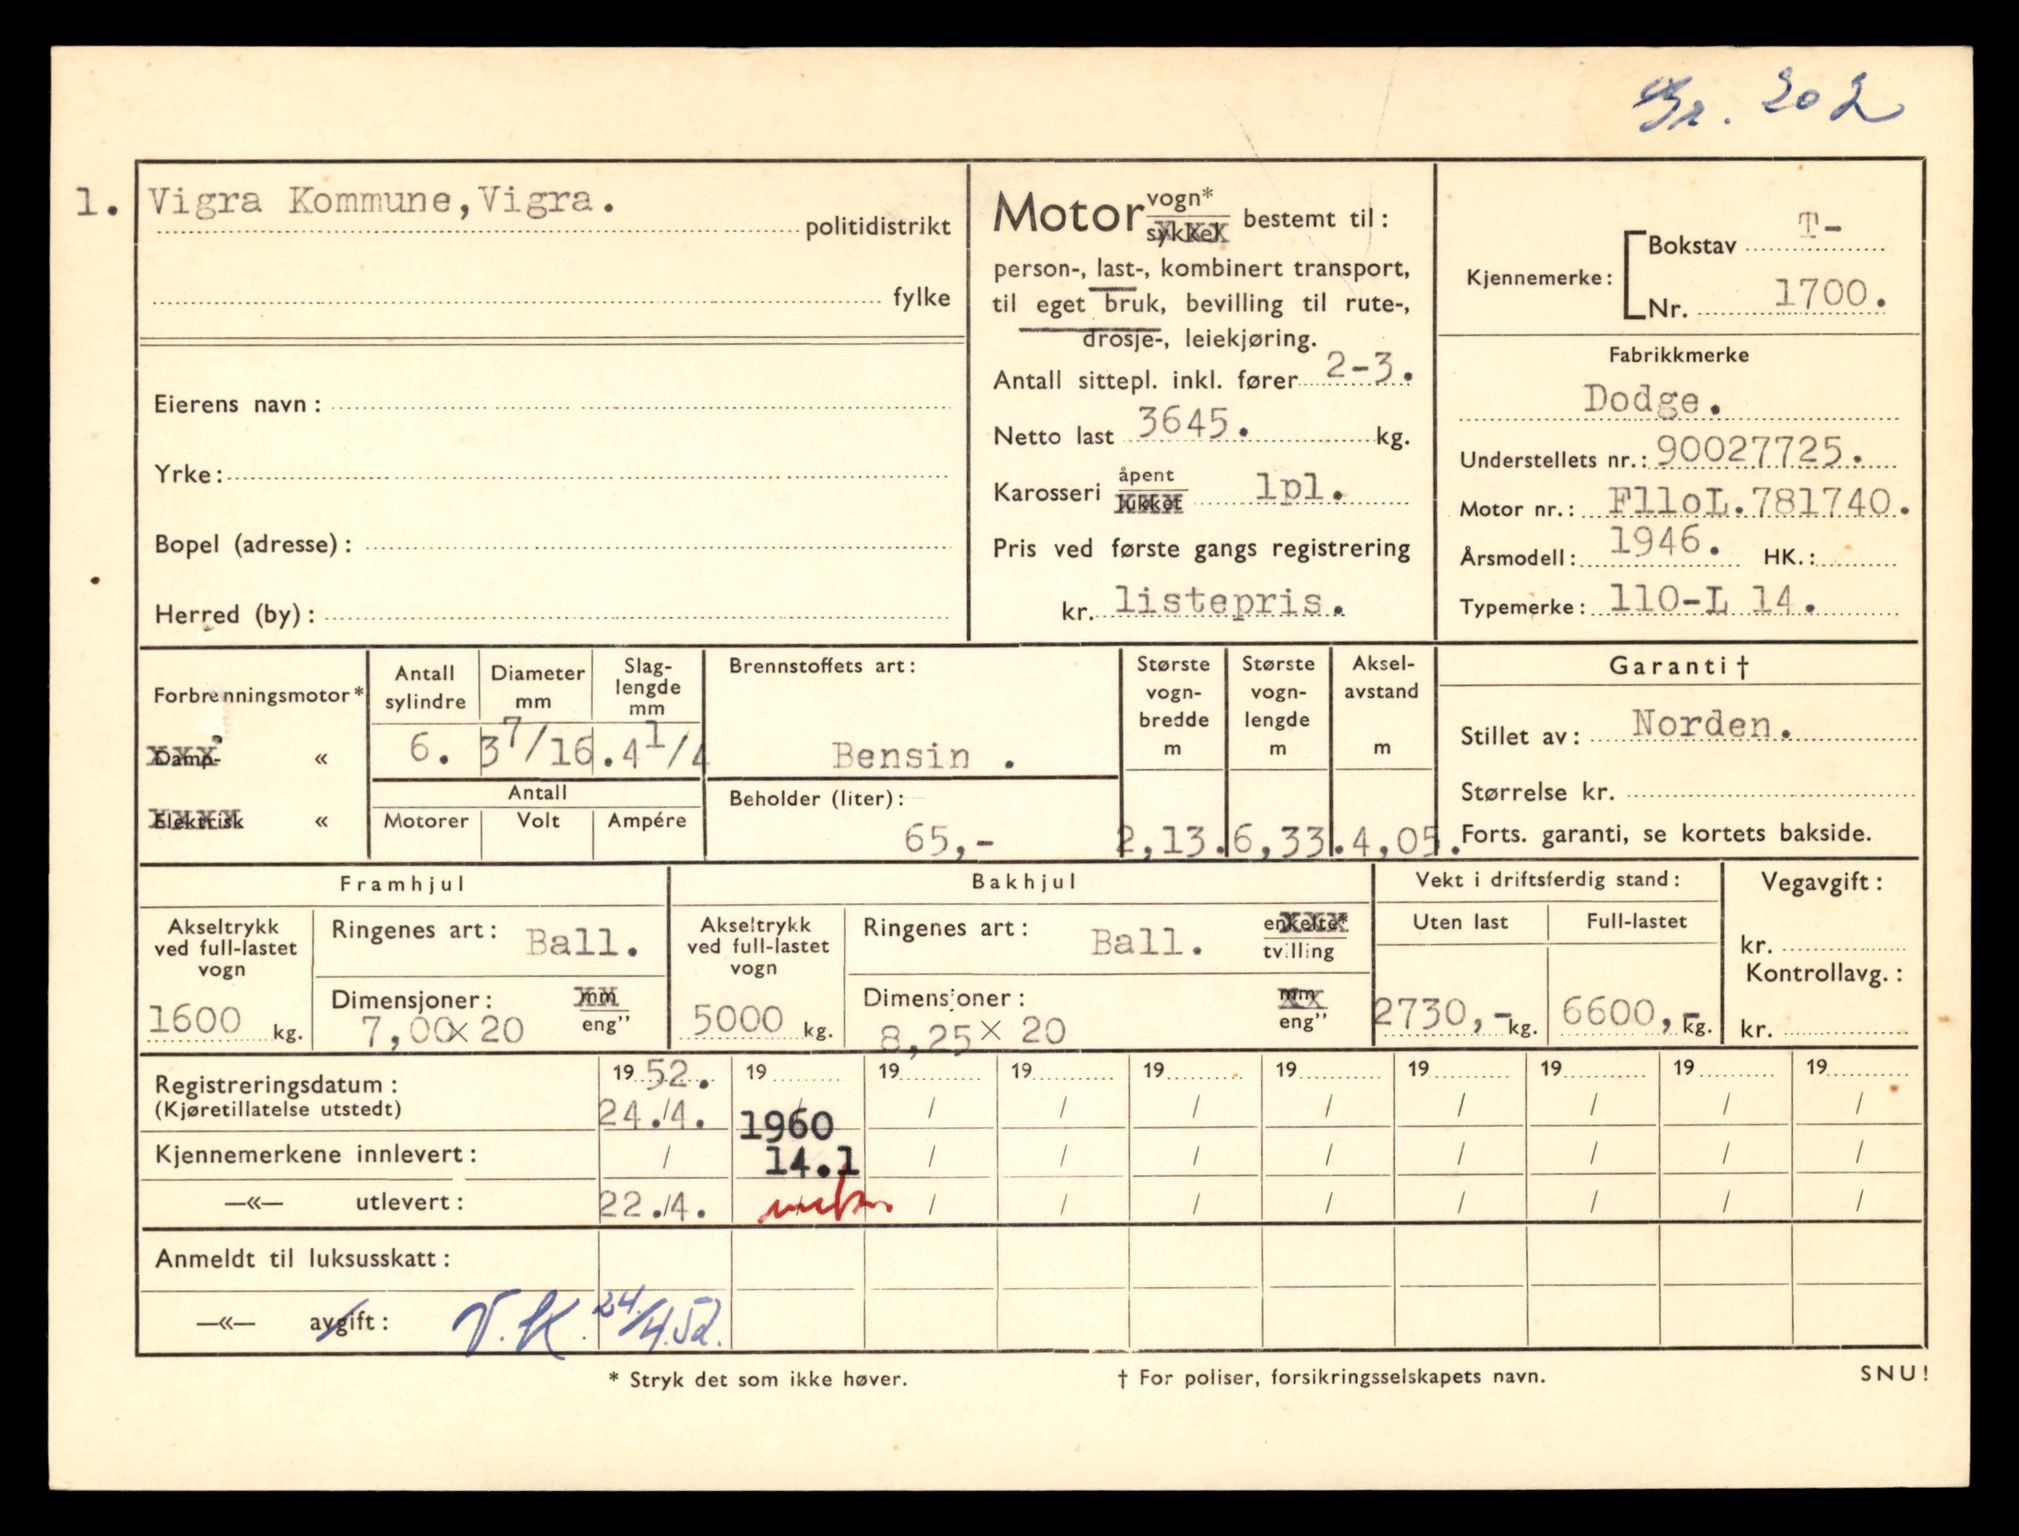 202
1. Vigra Kommune, Vigra.
politidistrikt
fylke
Eierens navn:
Yrke:
Bopel (adresse):
Herred (by):
Motor vogn* sykkel bestemt til:
person-, last-, kombinert transport,
til eget bruk, bevilling til rute-,
drosje-, leiekjøring.
Antall sittepl. inkl. fører 2-3.
Netto last 3645. kg.
Karosseri åpent lukket lpl.
Pris ved første gangs registrering
kr. listepris.
Kjennemerke: Bokstav T-
Nr. 1700.
Fabrikkmerke
Dodge.
Understellets nr.: 90027725.
Motor nr.: F11oL.781740.
Årsmodell: 1946. HK.:
Typemerke: 110-L 14.
Forbrenningsmotor*
Damp- «
Elektrisk «
Antall sylindre
6.
Diameter mm
3 7/16.
Slag-lengde mm
4 1/4
Antall
Motorer Volt Ampére
Brennstoffets art:
Bensin .
Beholder (liter):
65,-
Største vogn-bredde m
2,13.
Største vogn-lengde m
6,33.
Aksel-avstand m
4,05.
Garanti †
Stillet av: Norden.
Størrelse kr.
Forts. garanti, se kortets bakside.
Framhjul
Akseltrykk ved full-lastet vogn
1600 kg.
Ringenes art: Ball.
Dimensjoner: mm eng”
7,00 x 20
Bakhjul
Akseltrykk ved full-lastet vogn
5000 kg.
Ringenes art: Ball. enkelte* tvilling
Dimensjoner: mm eng”
8,25 x 20
Vekt i driftsferdig stand:
Uten last Full-lastet
2730,- kg. 6600,- kg.
Vegavgift:
kr.
Kontrollavg.:
kr.
Registreringsdatum: 19 52. 19 19 19 19 19 19 19 19 19
(Kjøretillatelse utstedt) 24./4. / / / / / / / / /
1960
Kjennemerkene innlevert: / 14.1 / / / / / / / /
—«— utlevert: 22./4. / / / / / / / /
Anmeldt til luksusskatt:
—«— avgift: V.K. 24/4.52.
* Stryk det som ikke høver.
† For poliser, forsikringsselskapets navn.
SNU!